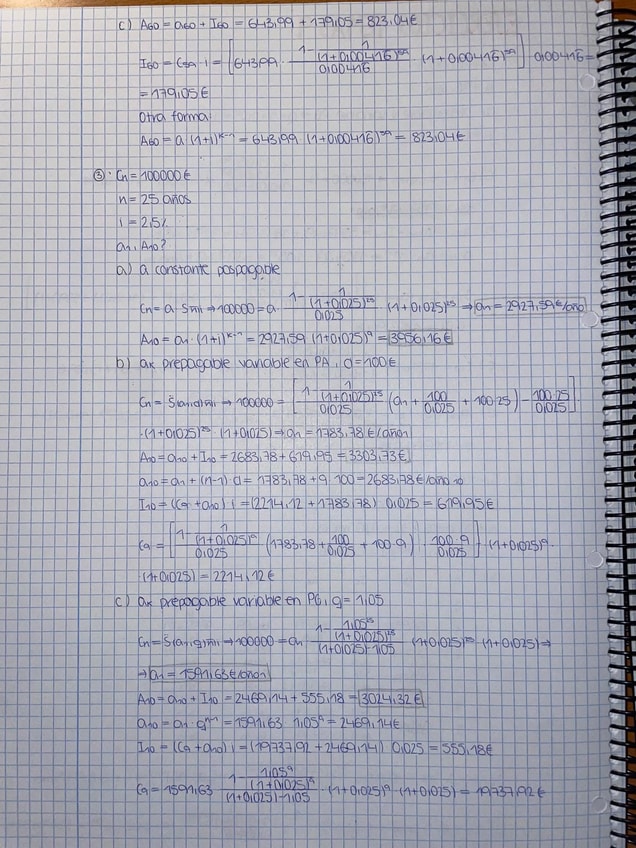 c) A60 = a60 + I60 = 643,99 + 179,05 = 823,04€
I60 = C59 · i = [643,99 · (1 - 1/(1+0,00416)^59)/0,00416 · (1+0,00416)^59] · 0,00416 =
= 179,05€
Otra forma:
A60 = a (1+i)^k-1 = 643,99 (1+0,00416)^59 = 823,04€
③ · Cn = 100000€
n = 25 años
i = 2,5%
a1, A10?
a) a constante pospagable
Cn = a · Sn̅|i → 100000 = a · (1 - 1/(1+0,025)^25)/0,025 · (1+0,025)^25 ⇒ a1 = 2927,59€/año
A10 = a1 · (1+i)^k-1 = 2927,59 (1+0,025)^9 = 3956,16€
b) ak prepagable variable en PA, d = 100€
Cn = S̈(a1,d)n̅|i → 100000 = [(1 - 1/(1+0,025)^25)/0,025 (a1 + 100/0,025 + 100·25) - 100·25/0,025] ·
· (1+0,025)^25 · (1+0,025) ⇒ a1 = 1783,78€/año1
A10 = a10 + I10 = 2683,78 + 619,95 = 3303,73€
a10 = a1 + (n-1) d = 1783,78 + 9 · 100 = 2683,78€/año 10
I10 = (C9 + a10) i = (22114,12 + 1783,78) 0,025 = 619,95€
C9 = [(1 - 1/(1+0,025)^9)/0,025 (1783,78 + 100/0,025 + 100·9) - 100·9/0,025] · (1+0,025)^9 ·
· (1+0,025) = 22114,12€
c) ak prepagable variable en PG, g = 1,05
Cn = S̈(a1,g)n̅|i → 100000 = a1 · (1 - 1,05^25/(1+0,025)^25)/((1+0,025)-1,05) · (1+0,025)^25 · (1+0,025) ⇒
⇒ a1 = 1591,63€/año1
A10 = a10 + I10 = 2469,14 + 555,18 = 3024,32€
a10 = a1 · g^n-1 = 1591,63 · 1,05^9 = 2469,14€
I10 = (C9 + a10) i = (19737,92 + 2469,14) 0,025 = 555,18€
C9 = 1591,63 · (1 - 1,05^9/(1+0,025)^9)/((1+0,025)-1,05) · (1+0,025)^9 · (1+0,025) = 19737,92€